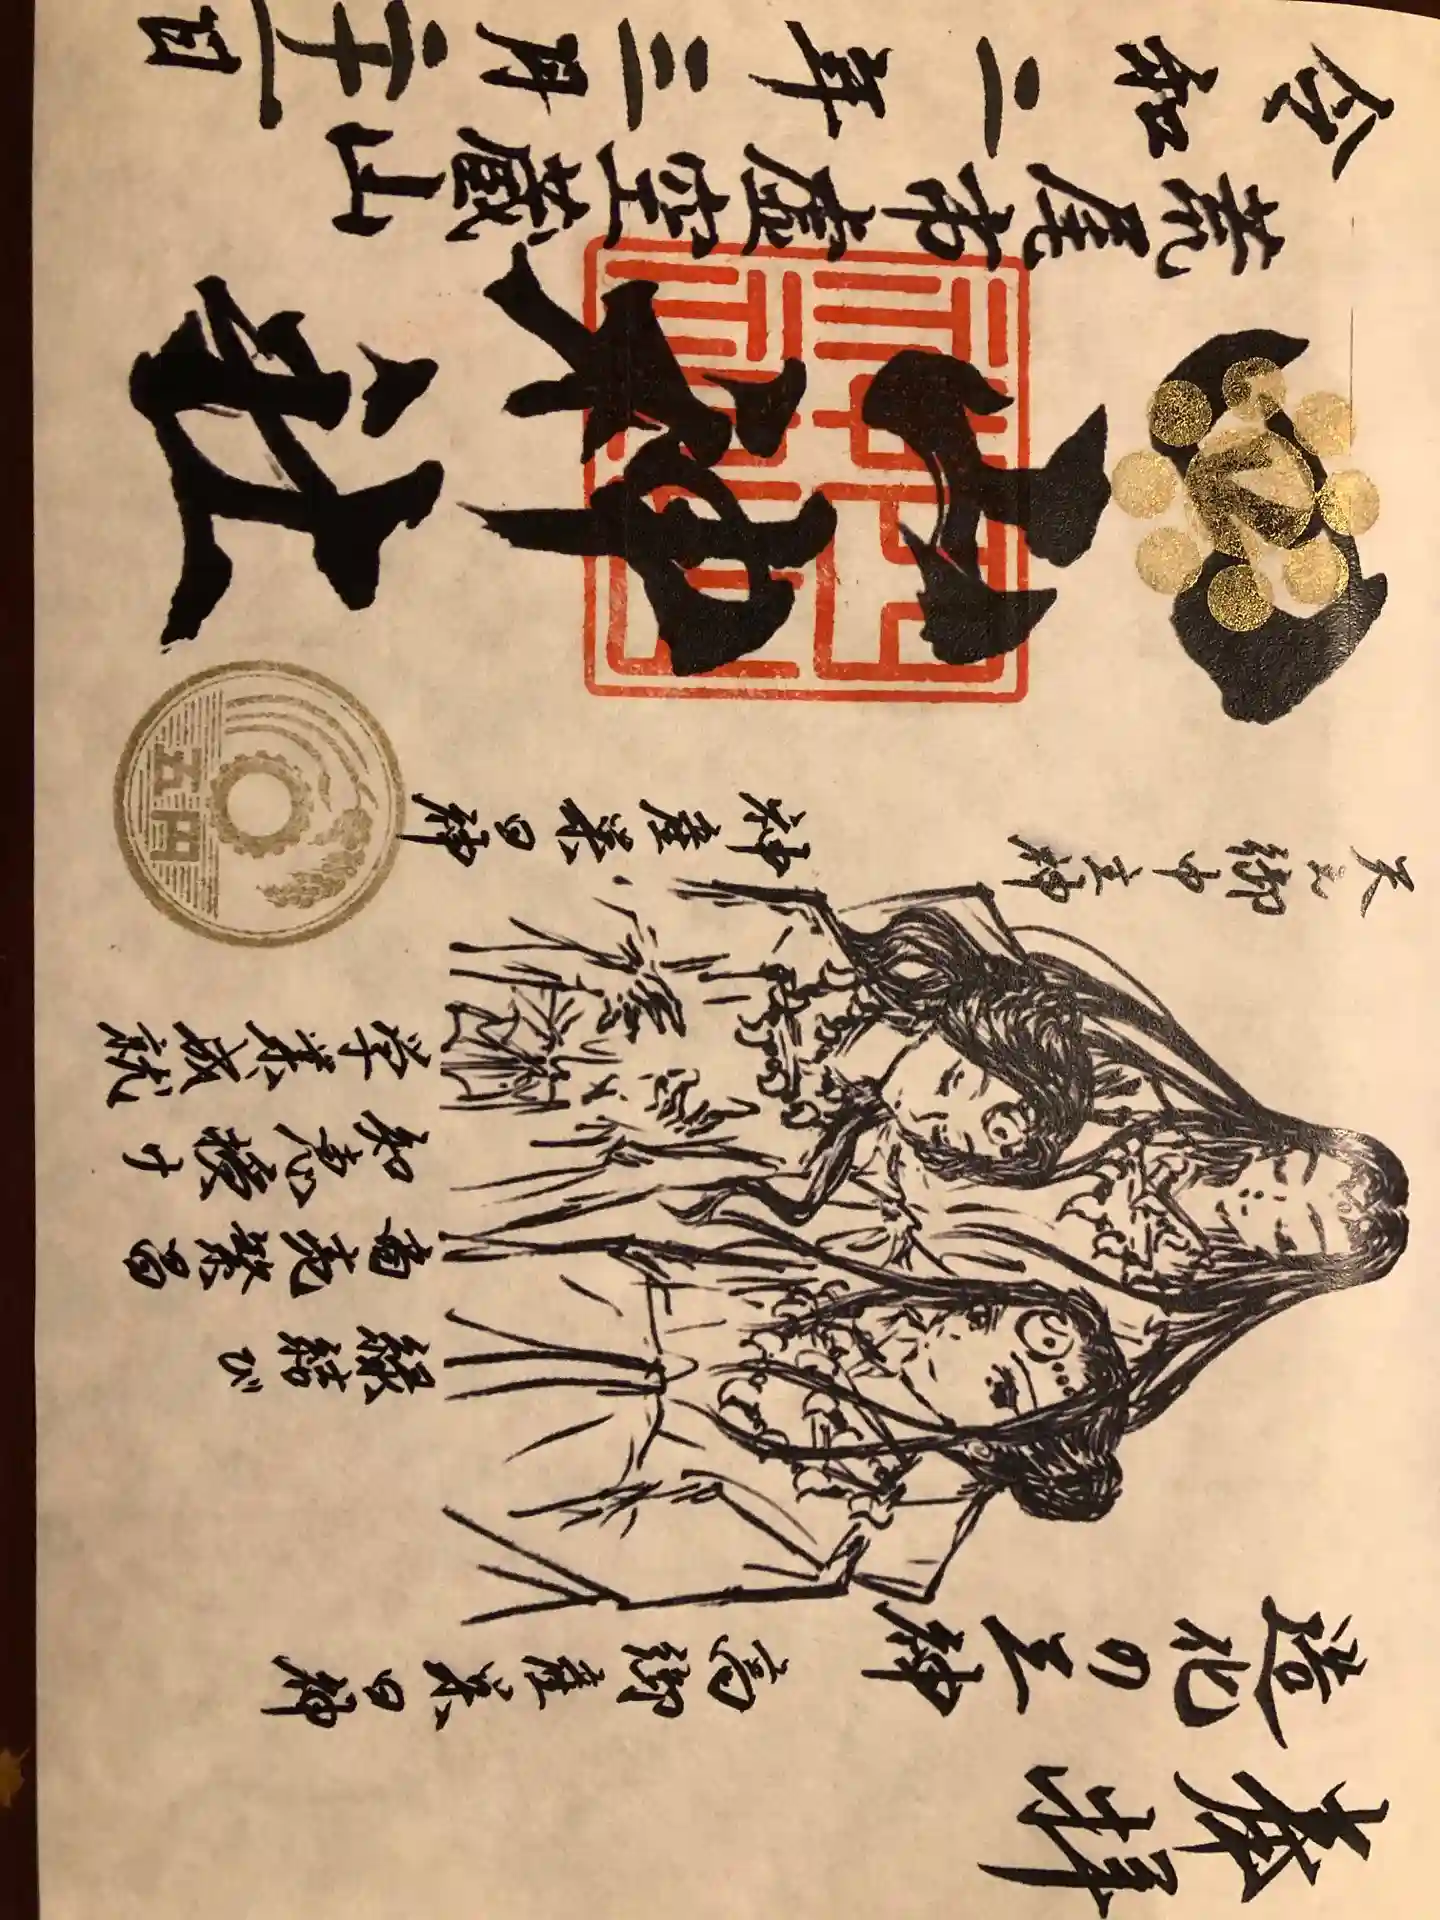 奉拝
造化の三神
高御産巣日神
縁結び
商売繁昌
知恵授
学業成就
天之御中主神
神産巣日神
五円
四山神社
荒尾市虚空蔵山
令和二年三月二十一日